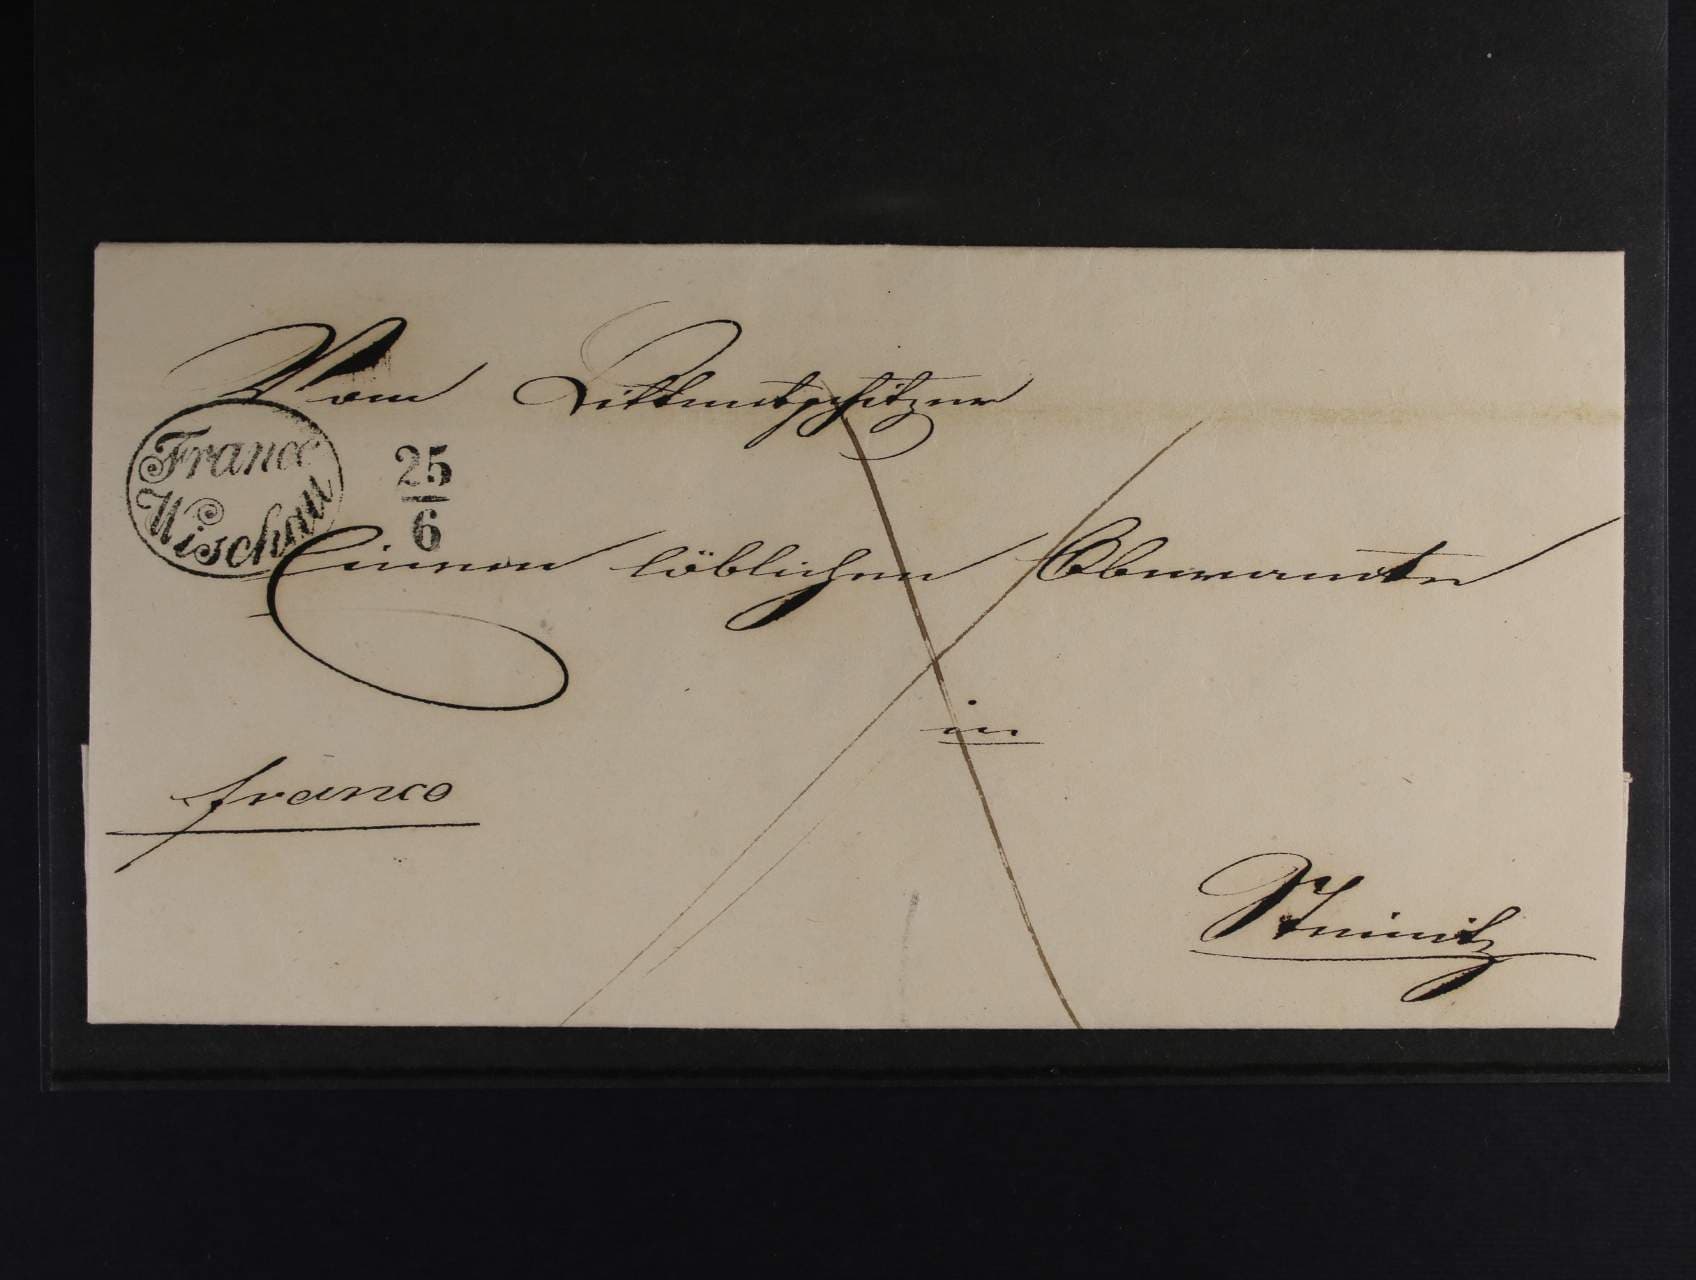 Vom Dittmetschitzer
Franco
Wischau
25
6
Einem löblichen Oberamte
in
franco
Steinitz